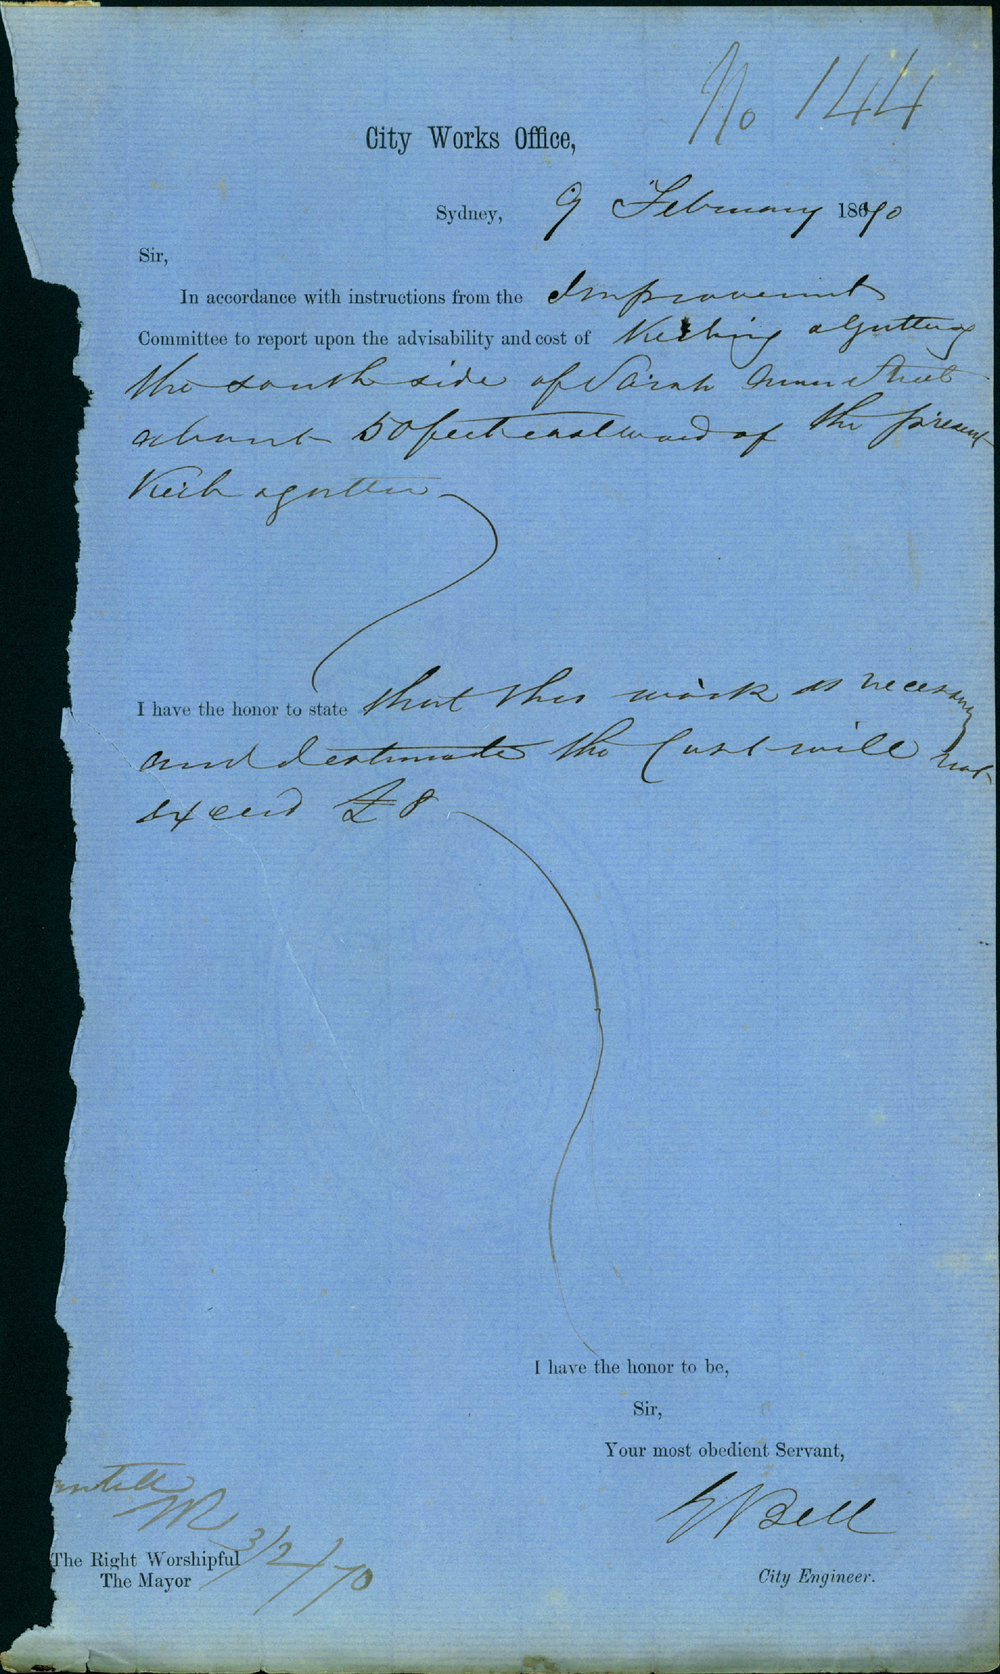 No 144
City Works Office,
Sydney, 9 February 1870
Sir,
In accordance with instructions from the Improvement
Committee to report upon the advisability and cost of Kerbing & Guttering
the south side of Sarah Ann Street
about 50 feet eastward of the present
Kerb & gutter
I have the honor to state that this work is necessary
and I estimate the Cost will not
exceed £8
I have the honor to be,
Sir,
Your most obedient Servant,
Bell
3/2/70
The Right Worshipful
The Mayor
City Engineer.